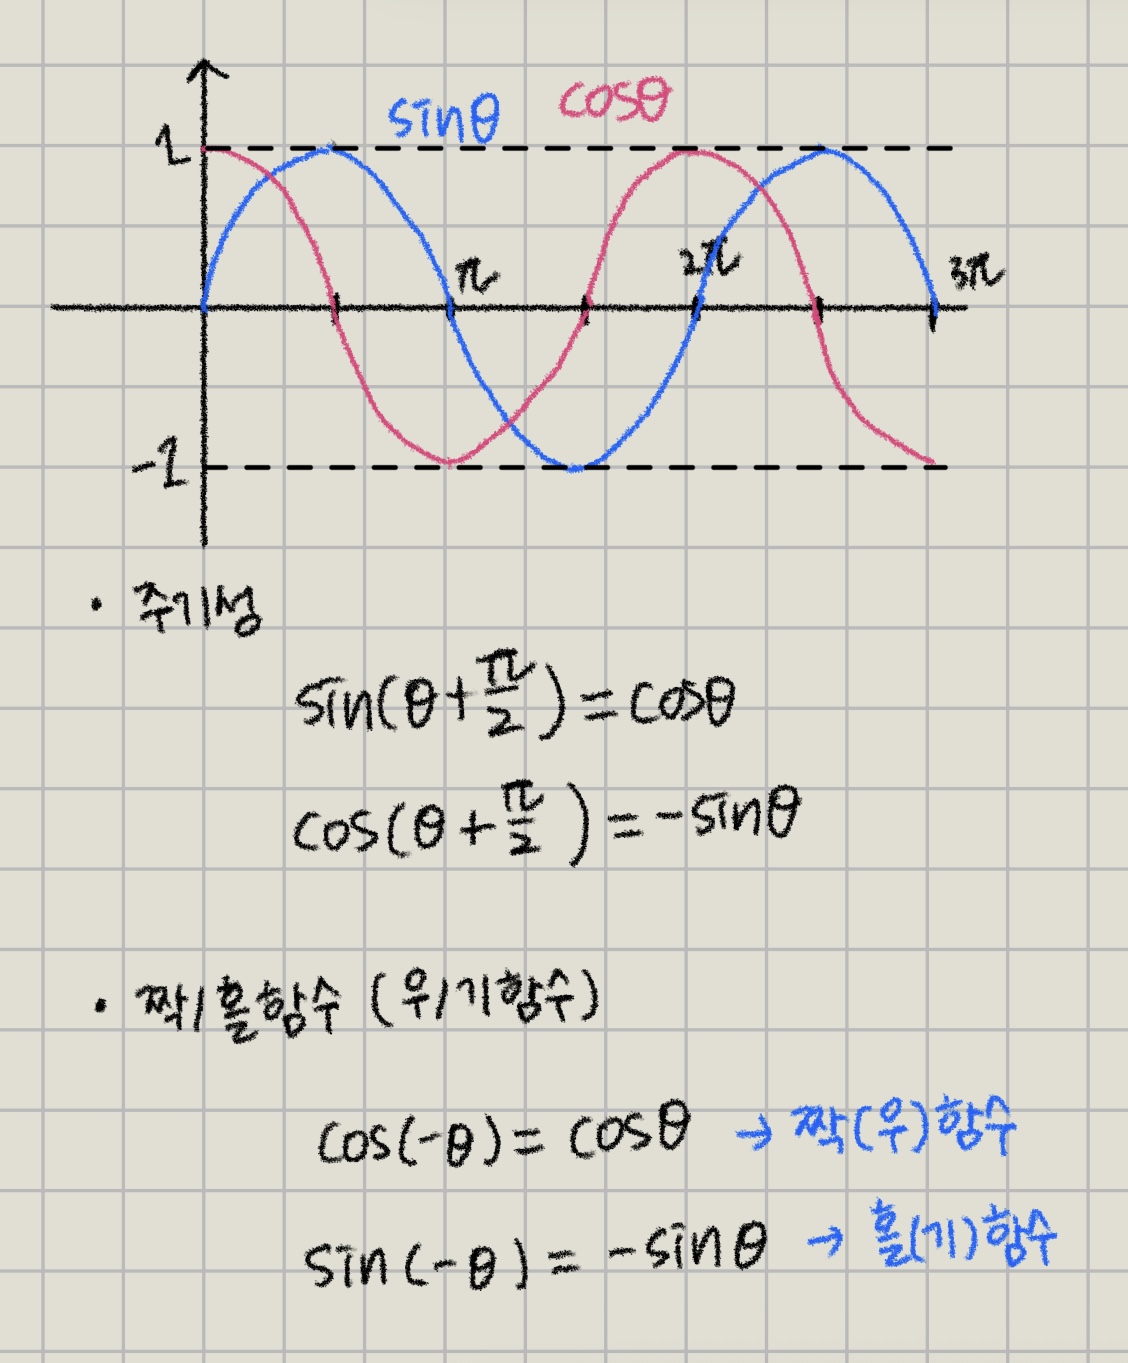 sinθ cosθ
1
π 2π 3π
-1
· 주기성
sin(θ+π/2)=cosθ
cos(θ+π/2)=-sinθ
· 짝/홀함수 (우/기함수)
cos(-θ)=cosθ → 짝(우)함수
sin(-θ)=-sinθ → 홀(기)함수